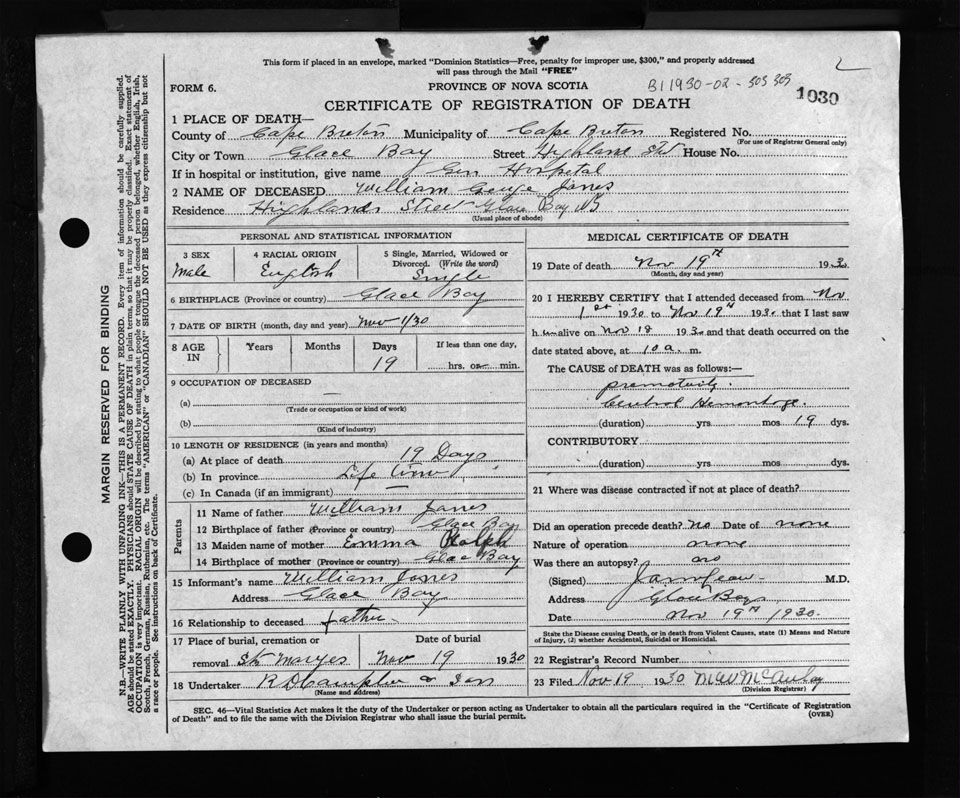 This form if placed in an envelope, marked "Dominion Statistics—Free, penalty for improper use, $300," and properly addressed
will pass through the Mail "FREE"
FORM 6.
PROVINCE OF NOVA SCOTIA
B1 1930-02-303 303
1030
CERTIFICATE OF REGISTRATION OF DEATH
1 PLACE OF DEATH—
County of Cape Breton Municipality of Cape Breton Registered No.
(For use of Registrar General only)
City or Town Glace Bay Street Highland House No.
If in hospital or institution, give name Gen Hospital
2 NAME OF DECEASED William George Janes
Residence Highland Street Glace Bay NS
(Usual place of abode)
PERSONAL AND STATISTICAL INFORMATION
3 SEX 4 RACIAL ORIGIN 5 Single, Married, Widowed or
Divorced. (Write the word)
Male English Single
6 BIRTHPLACE (Province or country) Glace Bay
7 DATE OF BIRTH (month, day and year) Nov 1/30
8 AGE IN Years Months Days If less than one day,
19 hrs. or min.
9 OCCUPATION OF DECEASED
(a) —
(Trade or occupation or kind of work)
(b)
(Kind of industry)
10 LENGTH OF RESIDENCE (in years and months)
(a) At place of death 19 Days
(b) In province Life time
(c) In Canada (if an immigrant)
Parents
11 Name of father William Janes
12 Birthplace of father (Province or country) Glace Bay
13 Maiden name of mother Emma Ralph
14 Birthplace of mother (Province or country) Glace Bay
15 Informant's name William Janes
Address Glace Bay
16 Relationship to deceased father
17 Place of burial, cremation or Date of burial
removal St Maryes Nov 19 1930
18 Undertaker R D & Son
(Name and address)
MEDICAL CERTIFICATE OF DEATH
19 Date of death Nov 19th 1930
(Month, day and year)
20 I HEREBY CERTIFY that I attended deceased from Nov
1st 1930 to Nov 19th 1930 that I last saw
him alive on Nov 18 1930 and that death occurred on the
date stated above, at 10 a. m.
The CAUSE of DEATH was as follows:—
prematurity.
Cerebral Hemorrhage.
(duration) yrs mos 19 dys.
CONTRIBUTORY
(duration) yrs. mos. dys.
21 Where was disease contracted if not at place of death?
Did an operation precede death? no Date of none
Nature of operation none
Was there an autopsy? no
(Signed) M.D.
Address Glace Bay
Date Nov 19th 1930.
State the Disease causing Death, or in death from Violent Causes, state (1) Means and Nature
of Injury, (2) whether Accidental, Suicidal or Homicidal.
22 Registrar's Record Number
23 Filed Nov 19 1930 McAulay
(Division Registrar)
SEC. 46—Vital Statistics Act makes it the duty of the Undertaker or person acting as Undertaker to obtain all the particulars required in the "Certificate of Registration
of Death" and to file the same with the Division Registrar who shall issue the burial permit.
(OVER)
MARGIN RESERVED FOR BINDING
N.B.—WRITE PLAINLY WITH UNFADING INK—THIS IS A PERMANENT RECORD. Every item of information should be carefully supplied.
AGE should be stated EXACTLY. PHYSICIANS should STATE CAUSE OF DEATH in plain terms, so that it may be properly classified. Exact statement of
OCCUPATION is very important. RACIAL ORIGIN will be described by stating to what people or tongue the deceased person belonged, whether English, Irish,
Scotch, French, German, Russian, Ruthenian, etc. The terms "AMERICAN" or "CANADIAN" SHOULD NOT BE USED as they express citizenship but not
a race or people. See instructions on back of Certificate.